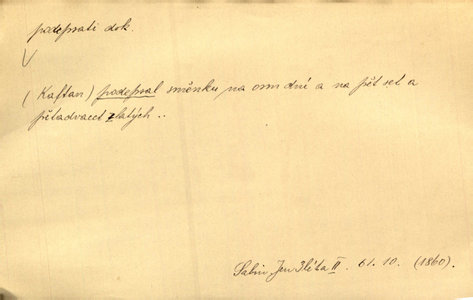 podepsati dok.
(Kaftan) podepsal směnku na osm dní a na pět set a
pětadvacet zlatých ..
Sabin, Jen 3 léta II. 61. 10. (1860).